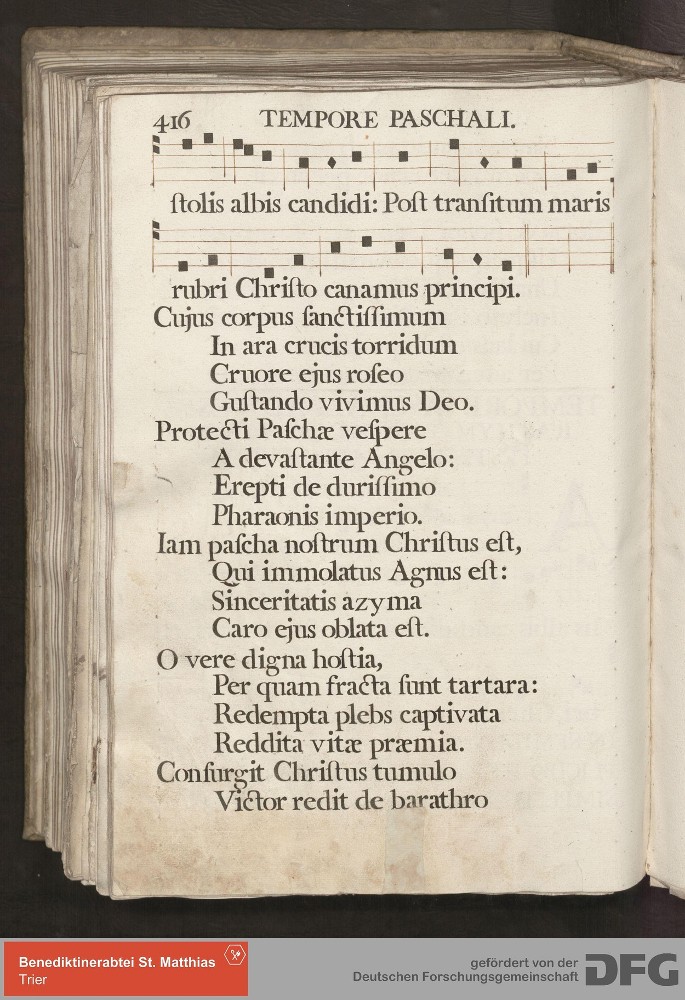 416 TEMPORE PASCHALI.
ſtolis albis candidi: Poſt tranſitum maris
rubri Chriſto canamus principi.
Cujus corpus ſanctiſſimum
In ara crucis torridum
Cruore ejus roſeo
Guſtando vivimus Deo.
Protecti Paſchæ veſpere
A devaſtante Angelo:
Erepti de duriſſimo
Pharaonis imperio.
Iam paſcha noſtrum Chriſtus eſt,
Qui immolatus Agnus eſt:
Sinceritatis azyma
Caro ejus oblata eſt.
O vere digna hoſtia,
Per quam fracta ſunt tartara:
Redempta plebs captivata
Reddita vitæ præmia.
Conſurgit Chriſtus tumulo
Victor redit de barathro
Benediktinerabtei St. Matthias
Trier
gefördert von der
Deutschen Forschungsgemeinschaft
DFG